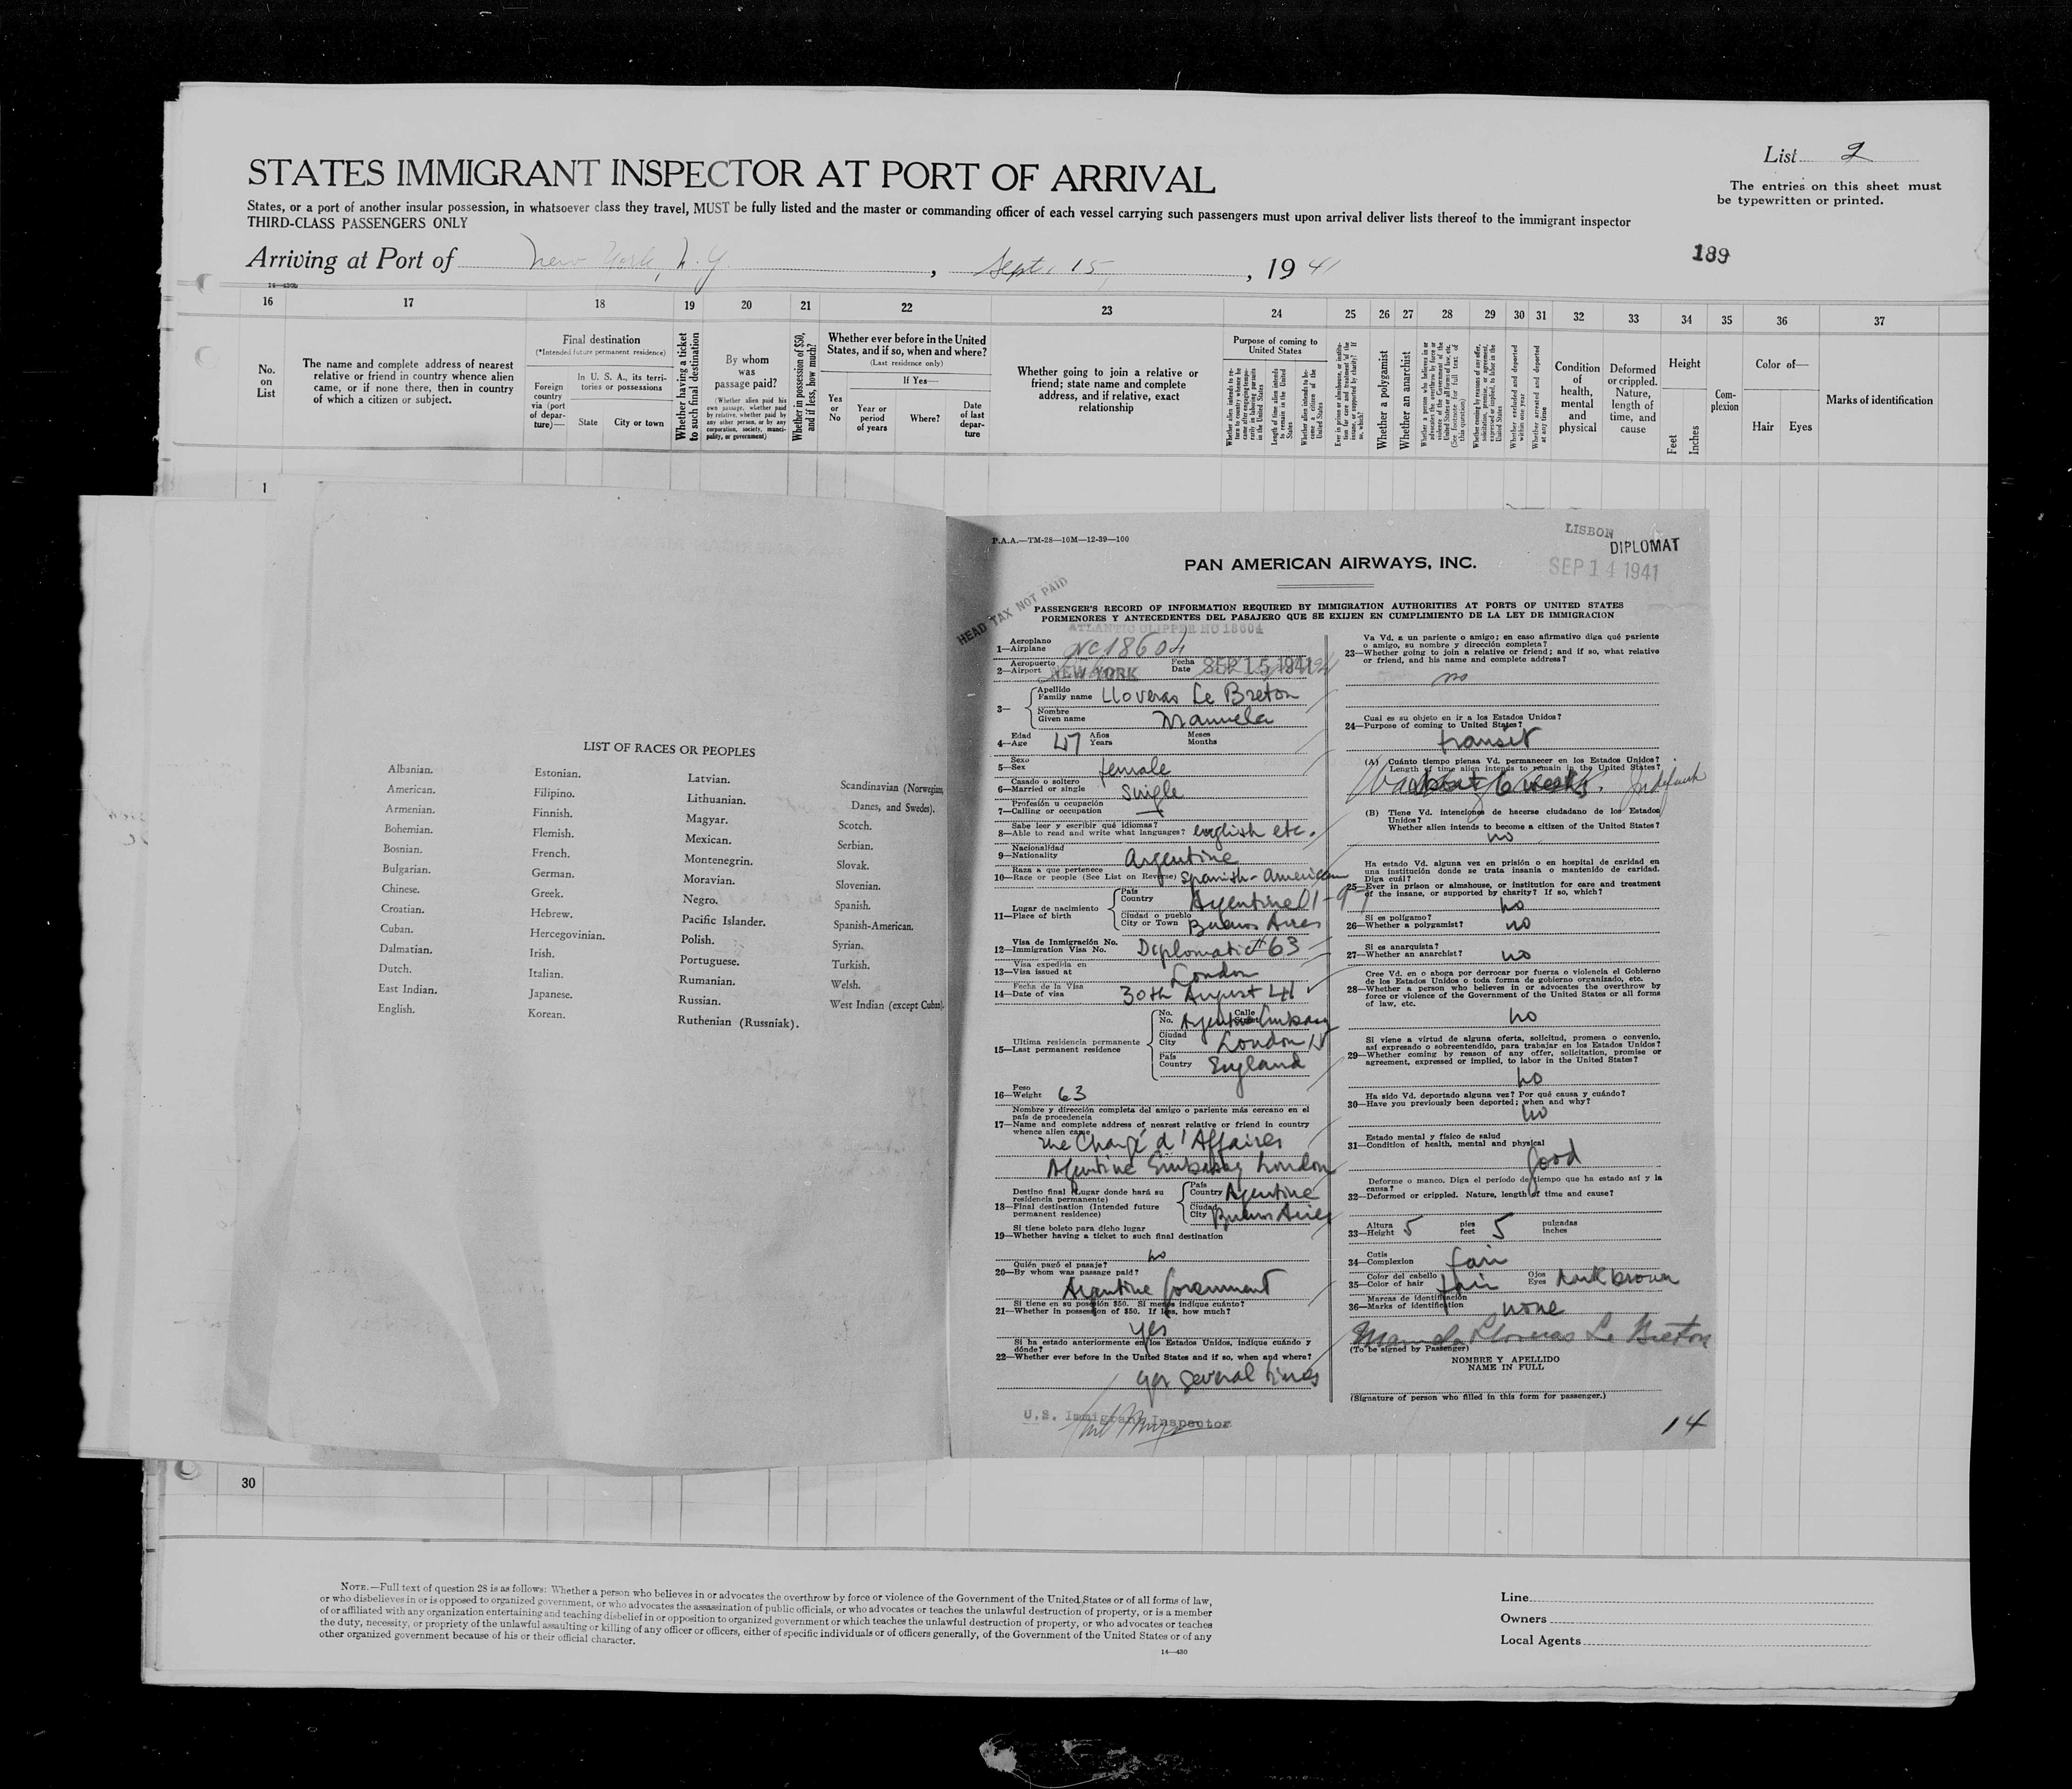 STATES IMMIGRANT INSPECTOR AT PORT OF ARRIVAL
States, or a port of another insular possession, in whatsoever class they travel, MUST be fully listed and the master or commanding officer of each vessel carrying such passengers must upon arrival deliver lists thereof to the immigrant inspector
THIRD-CLASS PASSENGERS ONLY
Arriving at Port of New York, N.Y., Sept. 15, 1941
List 2
The entries on this sheet must
be typewritten or printed.
189
16 17 18 19 20 21 22 23 24 25 26 27 28 29 30 31 32 33 34 35 36 37
No.
on
List
The name and complete address of nearest
relative or friend in country whence alien
came, or if none there, then in country
of which a citizen or subject.
Final destination
(*Intended future permanent residence)
Foreign
country
via (port
of depar-
ture)—
In U. S. A., its terri-
tories or possessions
State City or town
Whether having a ticket
to such final destination
By whom
was
passage paid?
(Whether alien paid his
own passage, whether paid
by relative, whether paid by
any other person, or by any
corporation, society, munici-
pality, or government)
Whether in possession of $50,
and if less, how much?
Whether ever before in the United
States, and if so, when and where?
(Last residence only)
If Yes—
Yes
or
No
Year or
period
of years
Where?
Date
of last
depar-
ture
Whether going to join a relative or
friend; state name and complete
address, and if relative, exact
relationship
Purpose of coming to
United States
Whether a polygamist
Whether an anarchist
Condition
of
health,
mental
and
physical
Deformed
or crippled.
Nature,
length of
time, and
cause
Height
Feet
Inches
Com-
plexion
Color of—
Hair Eyes
Marks of identification
1
LIST OF RACES OR PEOPLES
Albanian.
American.
Armenian.
Bohemian.
Bosnian.
Bulgarian.
Chinese.
Croatian.
Cuban.
Dalmatian.
Dutch.
East Indian.
English.
Estonian.
Filipino.
Finnish.
Flemish.
French.
German.
Greek.
Hebrew.
Hercegovinian.
Irish.
Italian.
Japanese.
Korean.
Latvian.
Lithuanian.
Magyar.
Mexican.
Montenegrin.
Moravian.
Negro.
Pacific Islander.
Polish.
Portuguese.
Rumanian.
Russian.
Ruthenian (Russniak).
Scandinavian (Norwegians,
Danes, and Swedes).
Scotch.
Serbian.
Slovak.
Slovenian.
Spanish.
Spanish-American.
Syrian.
Turkish.
Welsh.
West Indian (except Cuban).
P.A.A.—TM-28—10M—12-39—100
LISBON
DIPLOMAT
SEP 14 1941
PAN AMERICAN AIRWAYS, INC.
HEAD TAX NOT PAID
PASSENGER'S RECORD OF INFORMATION REQUIRED BY IMMIGRATION AUTHORITIES AT PORTS OF UNITED STATES
PORMENORES Y ANTECEDENTES DEL PASAJERO QUE SE EXIJEN EN CUMPLIMIENTO DE LA LEY DE IMMIGRACION
ATLANTIC CLIPPER NC 18604
Aeroplano
1—Airplane NC18604
Aeropuerto Fecha
2—Airport NEW YORK Date SEP 15 1941
3— Apellido
Family name Lloveras Le Breton
Nombre
Given name Manuela
Edad Años Meses
4—Age 47 Years Months
Sexo
5—Sex female
Casado o soltero
6—Married or single Single
Profesión u ocupación
7—Calling or occupation —
Sabe leer y escribir qué idiomas?
8—Able to read and write what languages? english etc.
Nacionalidad
9—Nationality Argentine
Raza a que pertenece
10—Race or people (See List on Reverse) Spanish-American
Lugar de nacimiento
11—Place of birth
País
Country Argentine
Ciudad o pueblo
City or Town Buenos Aires
Visa de Inmigración No.
12—Immigration Visa No. Diplomatic #63
Visa expedida en
13—Visa issued at London
Fecha de la Visa
14—Date of visa 30th August 41
Ultima residencia permanente
15—Last permanent residence
No. Calle
No. Street Argentine Embassy
Ciudad
City London
País
Country England
Peso
16—Weight 63
Nombre y dirección completa del amigo o pariente más cercano en el
país de procedencia
17—Name and complete address of nearest relative or friend in country
whence alien came
The Chargé d'Affaires
Argentine Embassy London
Destino final (Lugar donde hará su
residencia permanente)
18—Final destination (Intended future
permanent residence)
País
Country Argentine
Ciudad
City Buenos Aires
Si tiene boleto para dicho lugar
19—Whether having a ticket to such final destination
no
Quién pagó el pasaje?
20—By whom was passage paid?
Argentine Government
Si tiene en su posesión $50. Si menos indique cuánto?
21—Whether in possession of $50. If less, how much?
yes
Si ha estado anteriormente en los Estados Unidos, indique cuándo y
dónde?
22—Whether ever before in the United States and if so, when and where?
yes several times
U.S. Immigrant Inspector
Va Vd. a un pariente o amigo; en caso afirmativo diga qué pariente
o amigo, su nombre y dirección completa?
23—Whether going to join a relative or friend; and if so, what relative
or friend, and his name and complete address?
no
Cual es su objeto en ir a los Estados Unidos?
24—Purpose of coming to United States?
transit
(A) Cuánto tiempo piensa Vd. permanecer en los Estados Unidos?
Length of time alien intends to remain in the United States?
about 6 weeks.
(B) Tiene Vd. intenciones de hacerse ciudadano de los Estados
Unidos?
Whether alien intends to become a citizen of the United States?
no
Ha estado Vd. alguna vez en prisión o en hospital de caridad en
una institución donde se trata insania o mantenido de caridad.
Diga cuál?
25—Ever in prison or almshouse, or institution for care and treatment
of the insane, or supported by charity? If so, which?
no
Si es polígamo?
26—Whether a polygamist? no
Si es anarquista?
27—Whether an anarchist? no
Cree Vd. en o aboga por derrocar por fuerza o violencia el Gobierno
de los Estados Unidos o toda forma de gobierno organizado, etc.
28—Whether a person who believes in or advocates the overthrow by
force or violence of the Government of the United States or all forms
of law, etc.
no
Si viene a virtud de alguna oferta, solicitud, promesa o convenio,
así expresado o sobreentendido, para trabajar en los Estados Unidos?
29—Whether coming by reason of any offer, solicitation, promise or
agreement, expressed or implied, to labor in the United States?
no
Ha sido Vd. deportado alguna vez? Por qué causa y cuándo?
30—Have you previously been deported; when and why?
no
Estado mental y físico de salud
31—Condition of health, mental and physical
good
Deforme o manco. Diga el período de tiempo que ha estado así y la
causa?
32—Deformed or crippled. Nature, length of time and cause?
Altura pies pulgadas
33—Height 5 feet 5 inches
Cutis
34—Complexion fair
Color del cabello Ojos
35—Color of hair fair Eyes dark brown
Marcas de identificación
36—Marks of identification none
Manuela Lloveras Le Breton
(To be signed by Passenger)
NOMBRE Y APELLIDO
NAME IN FULL
(Signature of person who filled in this form for passenger.)
14
30
NOTE.—Full text of question 28 is as follows: Whether a person who believes in or advocates the overthrow by force or violence of the Government of the United States or of all forms of law,
or who disbelieves in or is opposed to organized government, or who advocates the assassination of public officials, or who advocates or teaches the unlawful destruction of property, or is a member
of or affiliated with any organization entertaining and teaching disbelief in or opposition to organized government or which teaches the unlawful destruction of property, or who advocates or teaches
the duty, necessity, or propriety of the unlawful assaulting or killing of any officer or officers, either of specific individuals or of officers generally, of the Government of the United States or of any
other organized government because of his or their official character.
14—430
Line
Owners
Local Agents